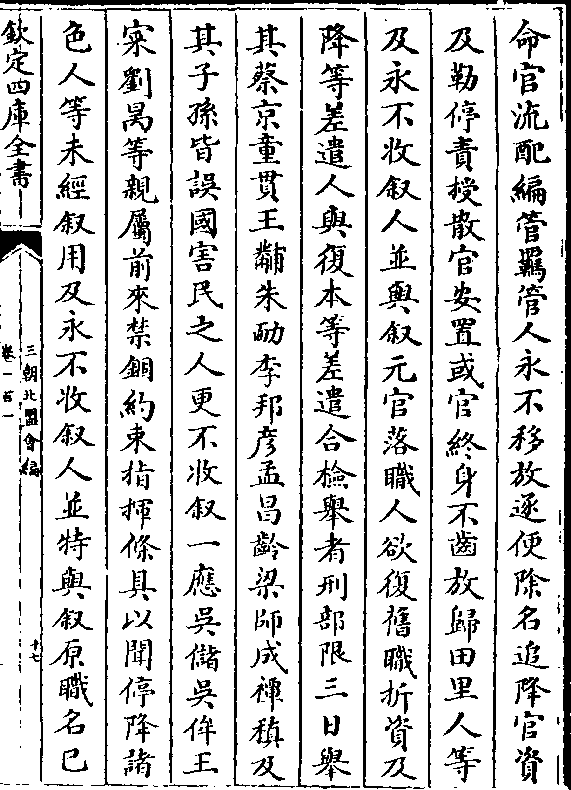 命官流配編管羈管人永不移放逐便除名追降官資
及勒停責授散官安置或官終身不齒放歸田里人等
及永不收叙人並與叙元官落職人欲復舊職折資及
降等差遣人與復本等差遣合檢舉者刑部限三日舉
其蔡京童貫王黼朱勔李邦彦孟昌齡梁師成禆稹及
其子孫皆誤國害民之人更不收叙一應吳儲吳侔王
寀劉昺等親屬前來禁錮約束指揮條具以聞停降諸
色人等未經叙用及永不收叙人並特與叙原職名已
欽定四庫全書
三朝北盟會編
卷一百一
十七